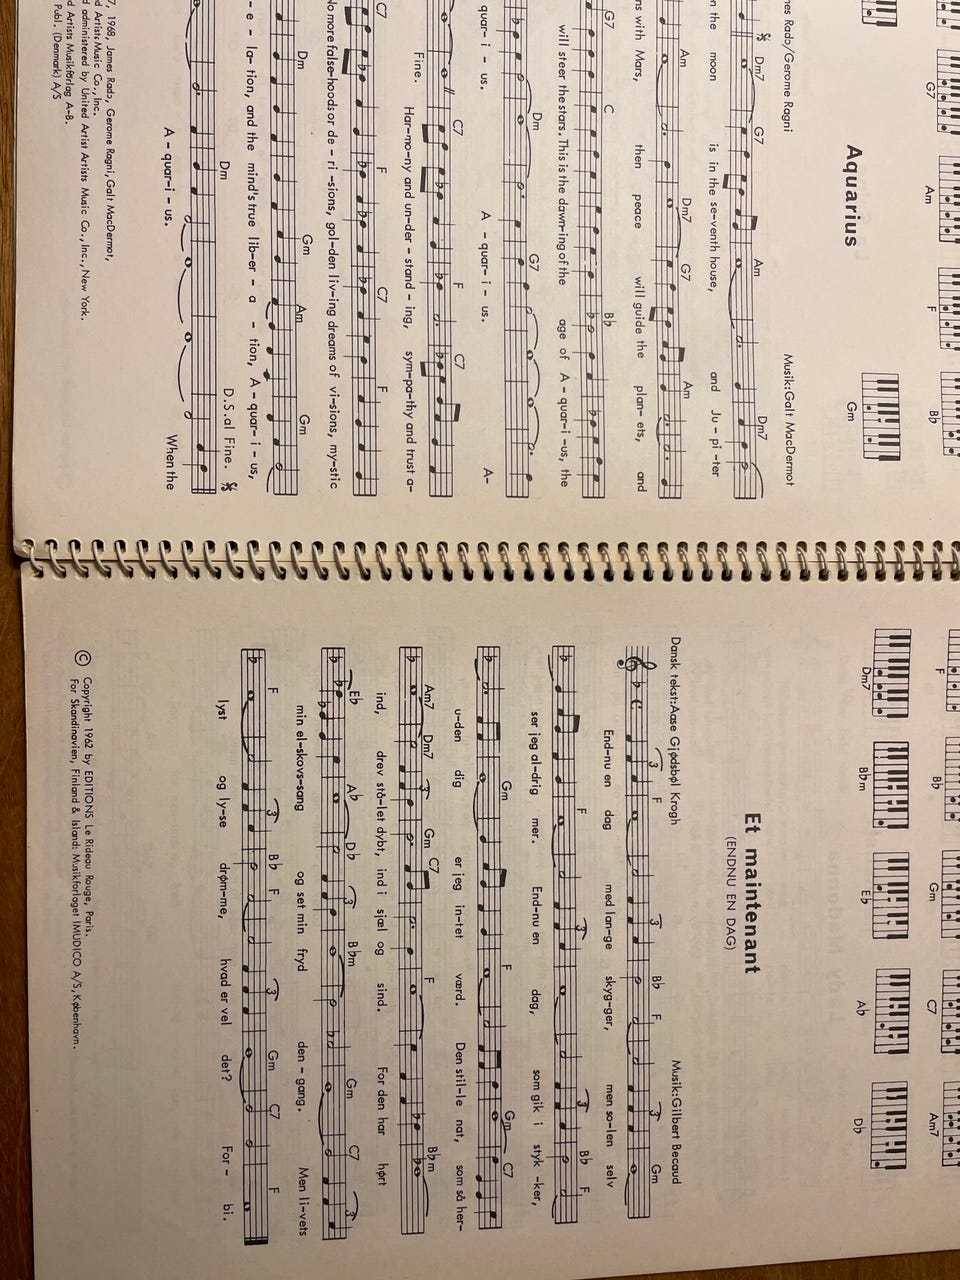 G7
Am
F
Bb
Gm
Aquarius
nes Rado/Gerome Ragni
Musik:Galt MacDermot
Dm7 G7 Am Dm7
n the moon is in the se-venth house, and Ju - pi -ter
Am Dm7 G7 Am
ns with Mars, then peace will guide the plan- ets, and
G7 C Bb
will steer the stars. This is the dawn-ing of the age of A - quar-i -us, the
Dm G7
quar- i - us. A - quar - i - us. A-
C7 F C7
Fine. Har-mo-ny and un-der - stand - ing, sym-pa-thy and trust a-
C7 F C7 F
No more false-hoods or de - ri -sions, gol-den liv-ing dreams of vi-sions, my-stic
Dm Gm Am Gm
- e - la- tion, and the mind's true lib-er - a - tion, A - quar- i - us,
Dm D.S.al Fine.
A - quar-i - us. When the
7, 1968, James Rado, Gerome Ragni, Galt MacDermot,
d Artists Music Co., Inc.
d administered by United Artist Artists Music Co., Inc., New York.
d Artists Musikforlag A-B.
Publ. (Denmark) A/S
F
Bb
Gm
C7
Am7
Dm7
Bbm
Eb
Ab
Db
Et maintenant
(ENDNU EN DAG)
Dansk tekst:Aase Gjødsbøl Krogh
Musik:Gilbert Becaud
3 F 3 Bb F 3 Gm
End-nu en dag med lan-ge skyg-ger, men so-len selv
F 3 3 Bb F
ser jeg al-drig mer. End-nu en dag, som gik i styk -ker,
Gm F Gm C7
u-den dig er jeg in-tet værd. Den stil-le nat, som så her-
Am7 Dm7 3 Gm C7 F Bbm
ind, drev stå-let dybt, ind i sjæl og sind. For den har hørt
Eb Ab Db 3 Bbm Gm C7 3
min el-skovs-sang og set min fryd den - gang. Men li-vets
F 3 Bb F 3 Gm C7 F
lyst og ly-se drøm-me, hvad er vel det? For - bi.
© Copyright 1962 by EDITIONS Le Rideau Rouge, Paris.
For Skandinavien, Finland & Island: Musikforlaget IMUDICO A/S, København.